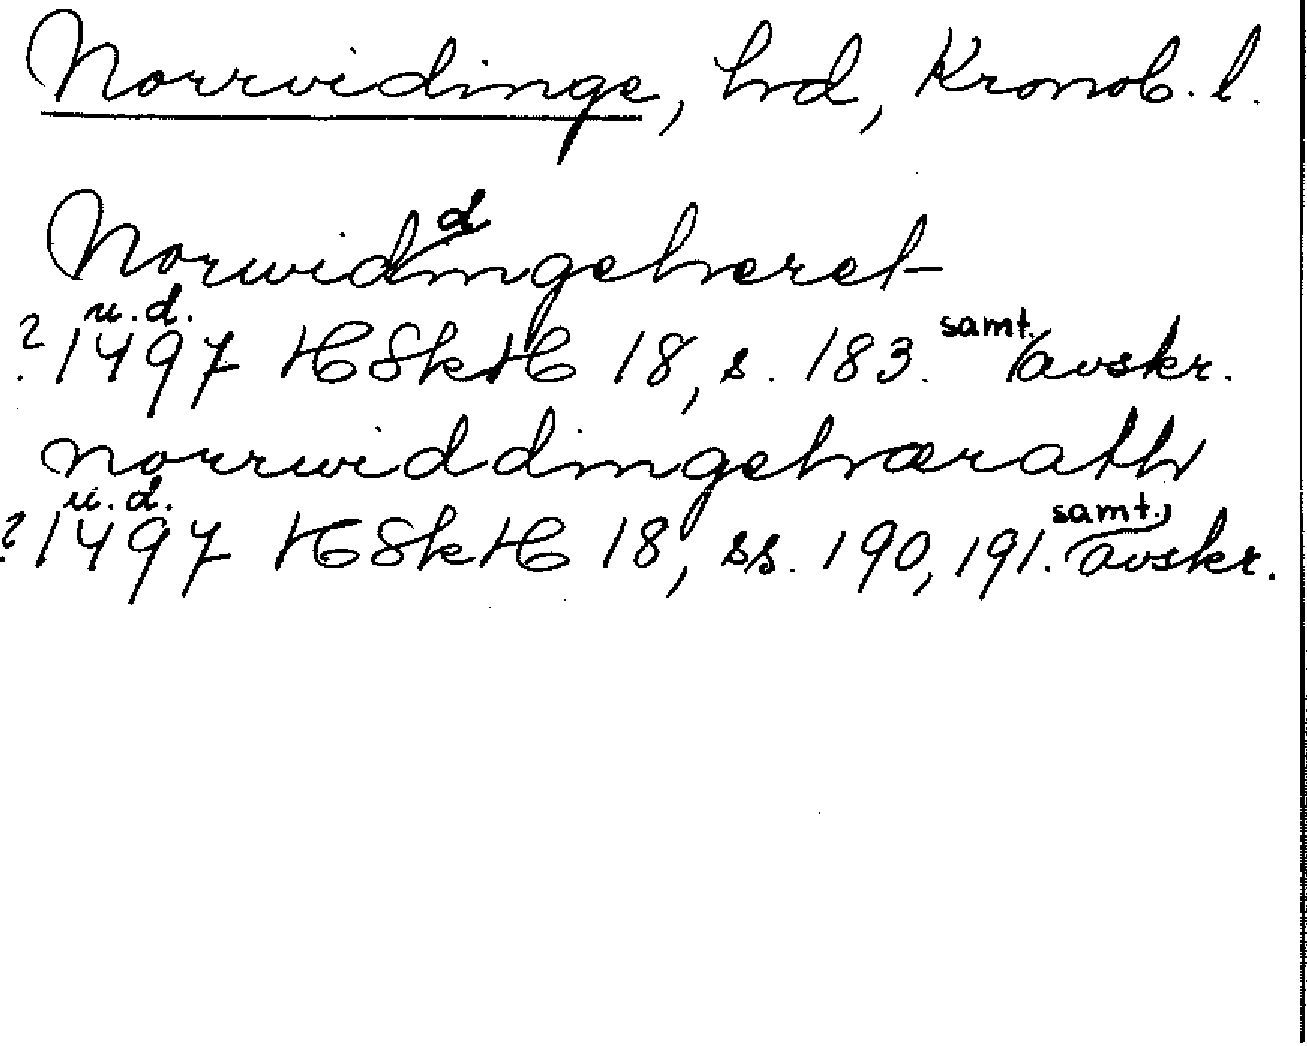 Norrvidinge, hd, Kronob. l.
Norwiddingeheret
? u.d. 1497 HSkH 18, s. 183. samt. avskr.
norrwiddingehærath
? u.d. 1497 HSkH 18, ss. 190, 191. samt. avskr.